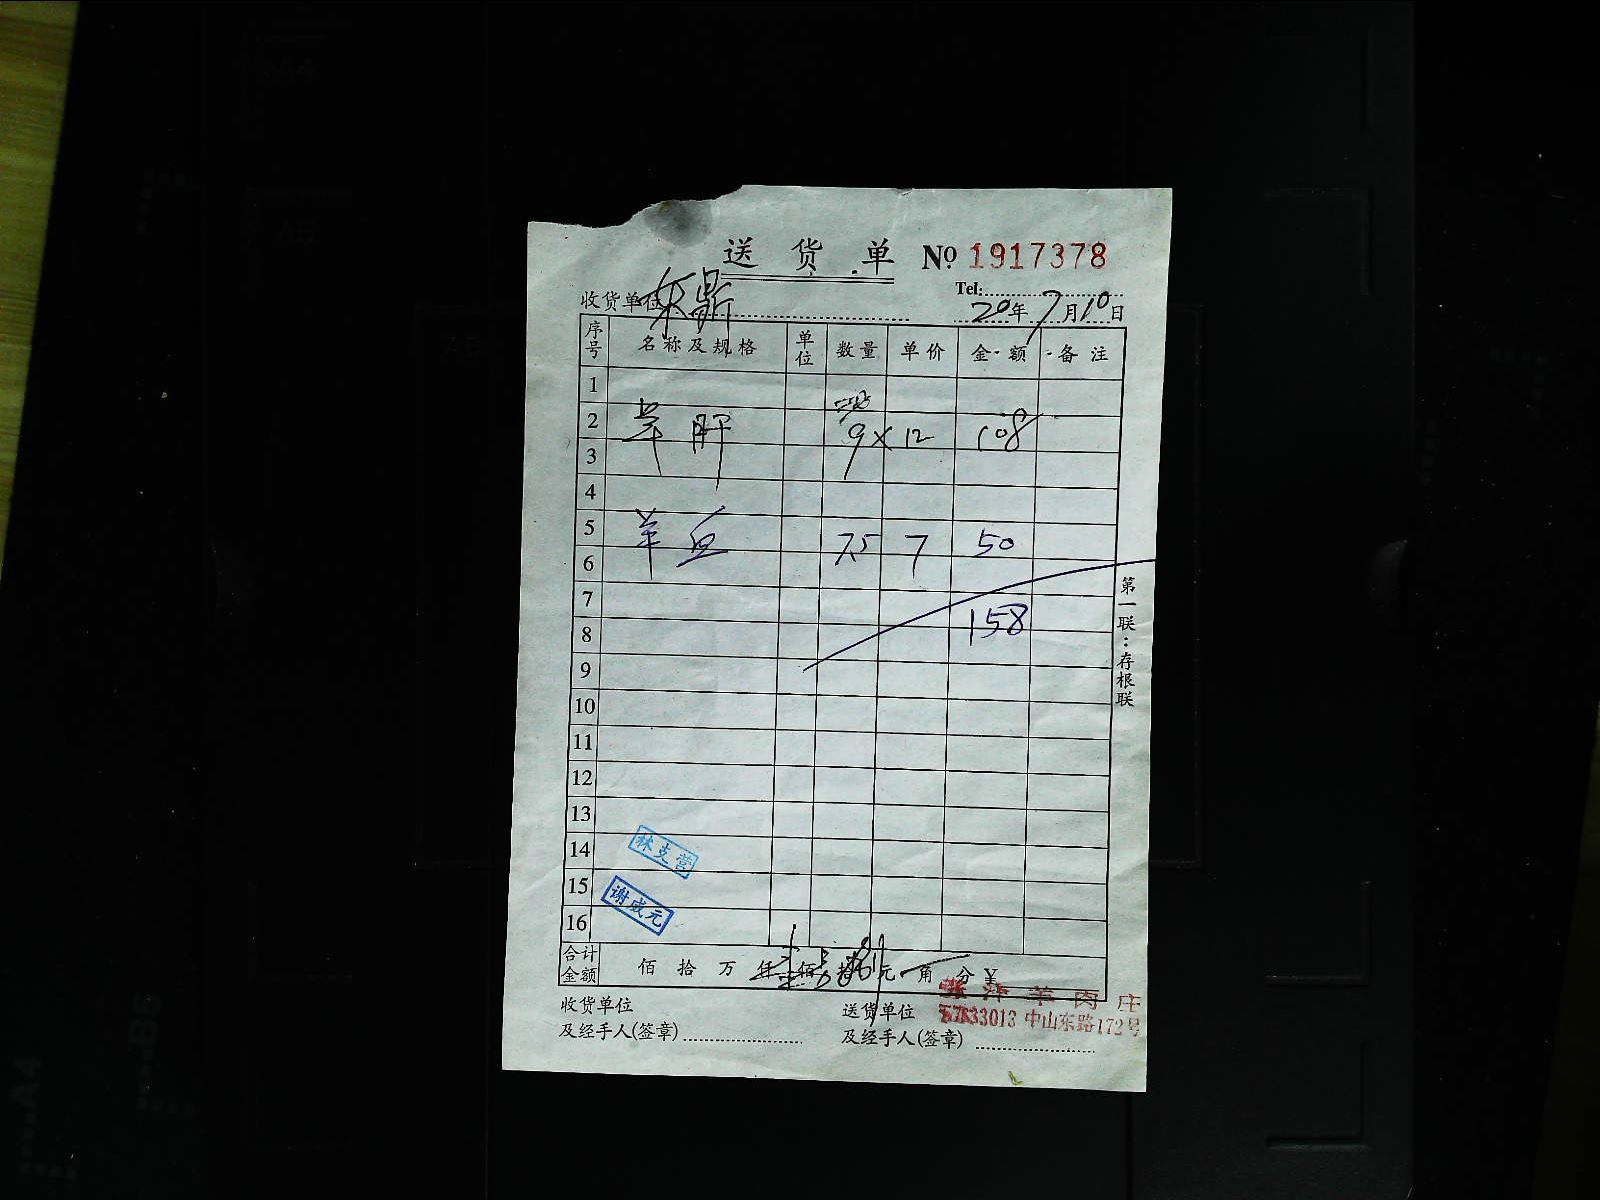 送货单 № 1917378
Tel:
收货单位 东鼎 20年7月10日
序号 名称及规格 单位 数量 单价 金额 备注
1
2 羊肝 9×12 108
3
4
5 羊血 7.5 7 50
6
7
8 158
9
10
11
12
13
14 林支营
15 谢成元
16
合计金额 佰 拾 万 仟 佰 拾 元 角 分 ¥
收货单位 送货单位 羊肉庄
及经手人(签章) 及经手人(签章) 33013 中山东路172号
第一联：存根联